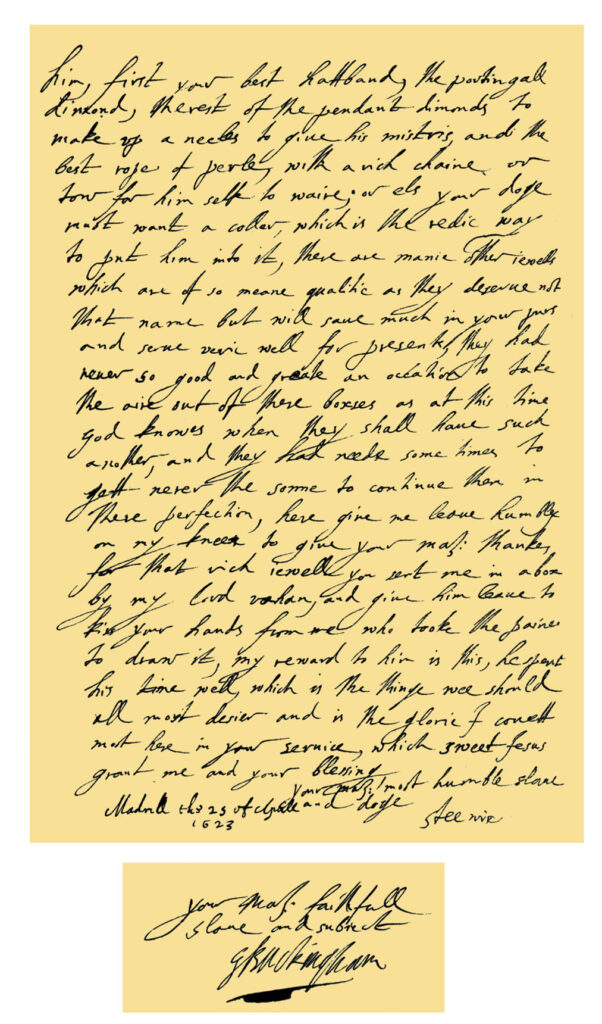 him, first your best hattband, the portingall
dimond, the rest of the pendant dimonds to
make up a necles to give his mistris, and the
best rope of perle, with a rich chaine or
tow for him self to waire, or els your doge
must want a coller, which is the redie way
to put him into it, there are manie other iewells
which are of so meane qualitie as they deserve not
that name but will save much in your purs
and serve verie well for presents, they had
never so good and greate an occation to take
the aire out of there boxses as at this time
god knowes when they shall have such
another, and they had neede some times to
gett never the sonne to continue them in
there perfection, here give me leave humbly
on my knees to give your maj: thankes
for that rich iewell you sent me in a box
by my lord vahan, and give him leave to
kiss your hands from me who tooke the paines
to draw it, my reward to him is this, he spent
his time well, which is the thinge wee should
all most desier and is the glorie I covett
most here in your service, which sweet Jesus
grant me and your blessing
your maj: most humble slave
Madrill the 25 of Aprill and doge
1623 Steenie
your maj: faithfull
slave and subiect
GBuckingham